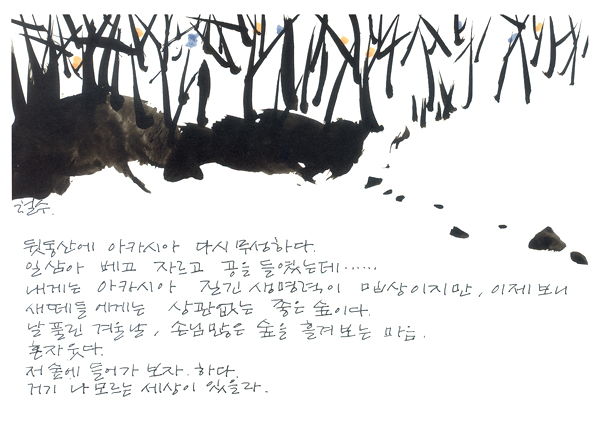 철수.
뒷동산에 아카시아 다시 무성하다.
일삼아 베고 자르고 공을 들였는데......
내게는 아카시아 질긴 생명력이 밉상이지만, 이제 보니
새떼들에게는 상관없는 좋은 숲이다.
날 풀린 겨울날, 손님 많은 숲을 흘겨보는 마음.
혼자 웃다.
저 숲에 들어가 보자. 하다.
거기 나 모르는 세상이 있을라.